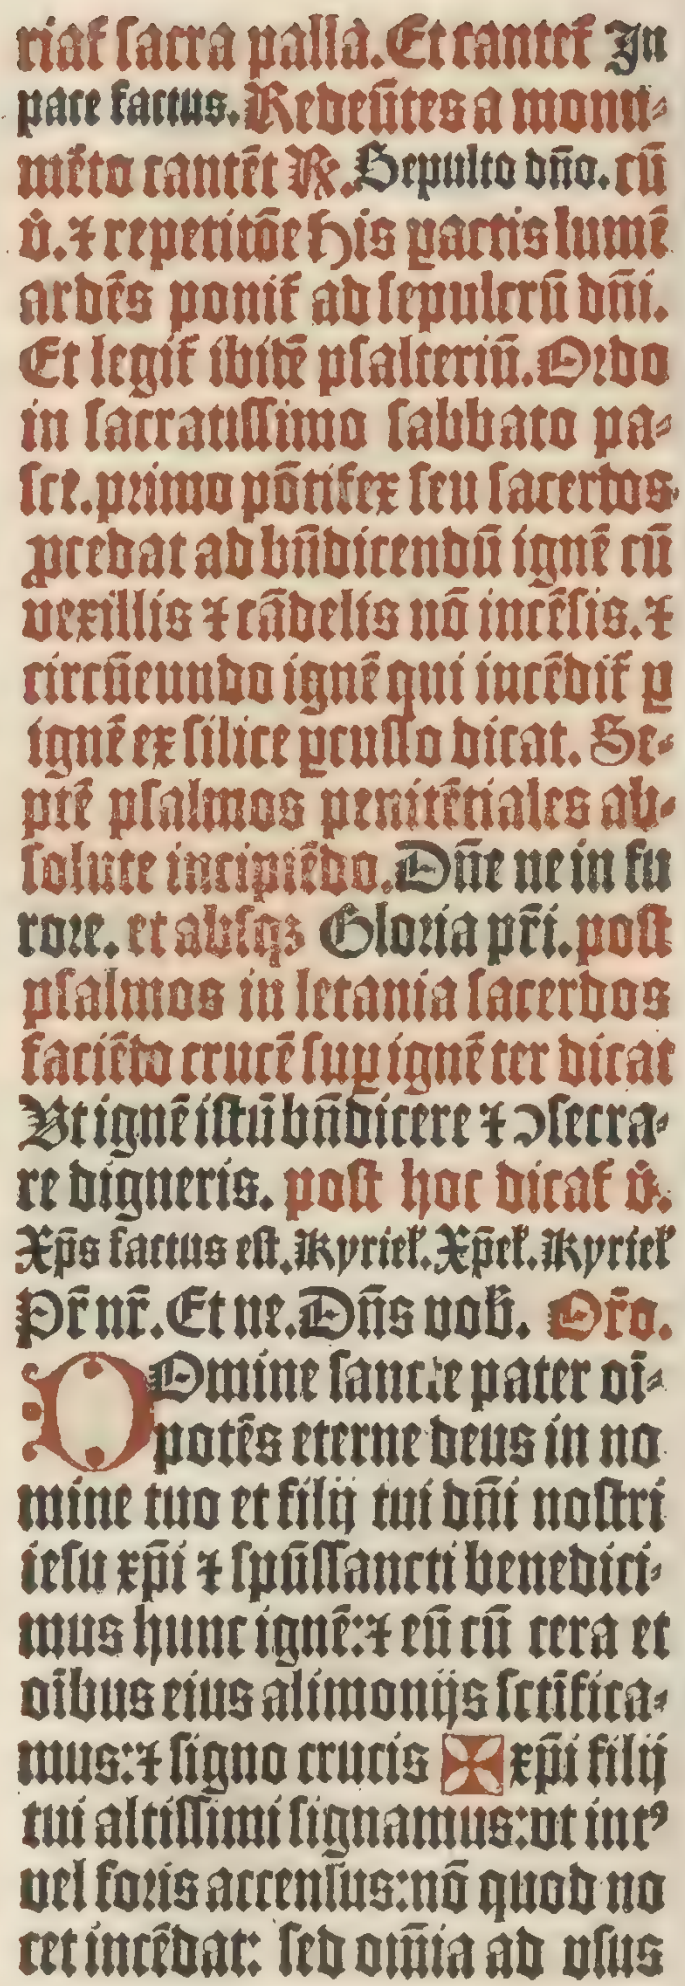 riaꝶ ſacra palla. Et cantetꝶ In
pace factus. Redeūtes a monu⸗
mēto cantēt ℟. Sepulto dn̄o. cū
v̇. ⁊ repetitōe His ꝑactis lumē
ardēs poniꝶ ad ſepulcrū dn̄i.
Et legiꝶ ibidē pſalteriū. Oꝛdo
in ſacratiſſimo ſabbato pa⸗
ſce. pꝛimo pōtifex ſeu ſacerdos
ꝓcedat ad bn̄dicendū ignē cū
vexillis ⁊ cādelis nō incēſis. ⁊
circūeundo ignē qui incēdiꝶ ꝑ
ignē ex ſilice ꝑcuſſo dicat. Se⸗
ptē pſalmos penitētiales ab⸗
ſolute incipiēdo. Dn̄e ne in fu
roꝛe. et abſqꝫ Gloꝛia pr̄i. poſt
pſalmos in letania ſacerdos
faciēdo crucē ſuꝑ ignē ter dicat
Vt ignē iſtū bn̄dicere ⁊ ↄſecra⸗
re digneris. poſt hoc dicaꝶ v̇.
Xp̄s factus eſt. Kyrieꝉ. Xp̄eꝉ. Kyrieꝉ
Pr̄ nr̄. Et ne. Dn̄s vob̄. Or̄o.
DOmine ſancte pater oī⸗
potēs eterne deus in no
mine tuo et filij tui dn̄i noſtri
ieſu xp̄i ⁊ ſpūſſancti benedici⸗
mus hunc ignē: ⁊ eū cū cera et
oībus eius alimonijs ſctīfica⸗
mus: ⁊ ſigno crucis ✠ xp̄i filij
tui altiſſimi ſignamus: vt intꝰ
vel foꝛis accenſus: nō quod no
cet incēdat: ſed om̄ia ad vſus